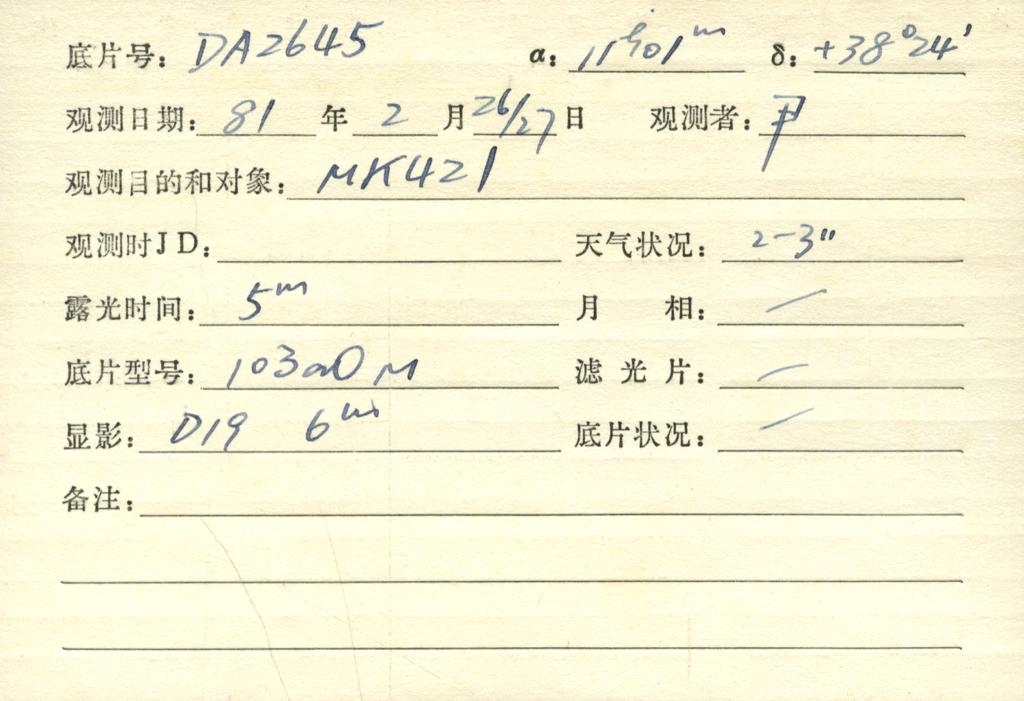 底片号：DA2645 α：11ʰ01ᵐ δ：+38°24′
观测日期：81年2月26/27日 观测者：尹
观测目的和对象：MK421
观测时JD： 天气状况：2-3″
露光时间：5ᵐ 月相：—
底片型号：103aO M 滤光片：—
显影：D19 6ᵐ 底片状况：—
备注：